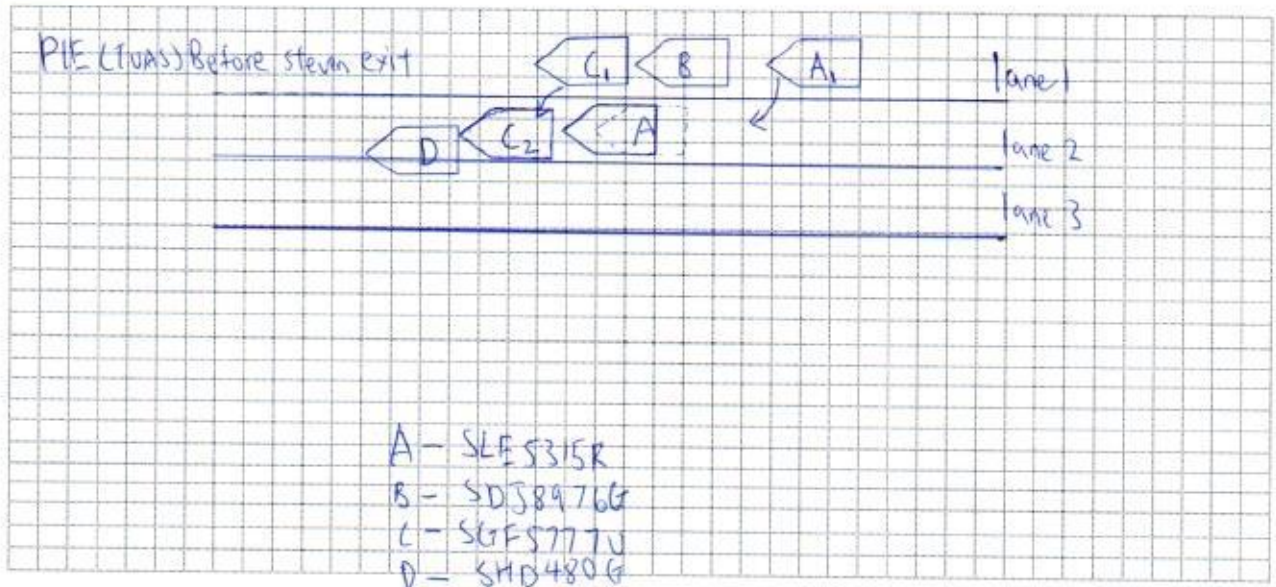 PIE (TUAS) Before steven exit
C1 B A1 lane 1
D C2 A lane 2
lane 3
A - SLE5315R
B - SDJ8976G
C - SGF5777U
D - SHD480G